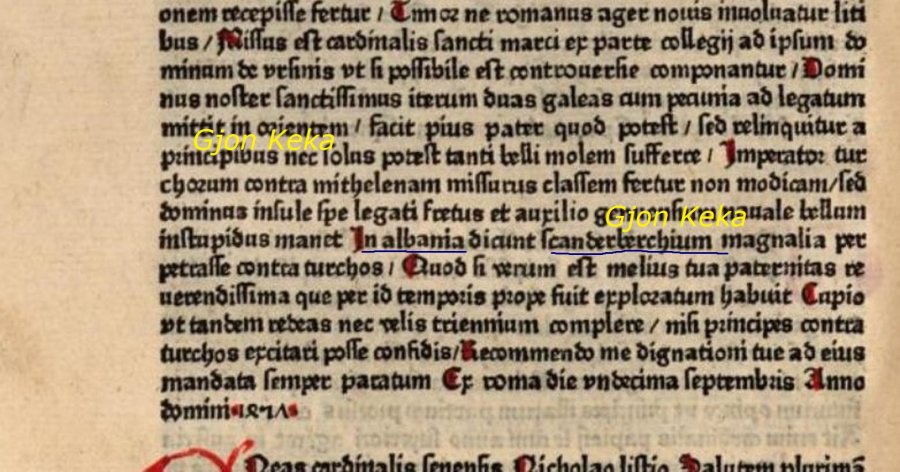 onem recepisse fertur / Timor ne romanus ager nouis inuoluatur liti
bus / Missus est cardinalis sancti marci ex parte collegij ad ipsum do
minum de vrsinis vt si possibile est controuersie componantur / Domi
nus noster sanctissimus iterum duas galeas cum pecunia ad legatum
mittit in orientem / facit pius pater quod potest / sed relinquitur a
principibus nec solus potest tanti belli molem sufferre / Imperator tur
chorum contra mithelenam missurus classem fertur non modicam/sed
dominus insule spe legati fretus et auxilio nauale bellum
instupidus manet In albania dicunt scanderberchium magnalia per
petrasse contra turchos / Quod si verum est melius tua paternitas re
uerendissima que per id temporis prope fuit exploratum habuit Cupio
vt tandem redeas nec velis triennium complere / nisi principes contra
turchos excitari posse confidis/Recommendo me dignationi tue ad eius
mandata semper paratum Ex roma die vndecima septembris Anno
domini
Eneas cardinalis senensis Nicholao listio Salutem plurimã
Gjon Keka
Gjon Keka